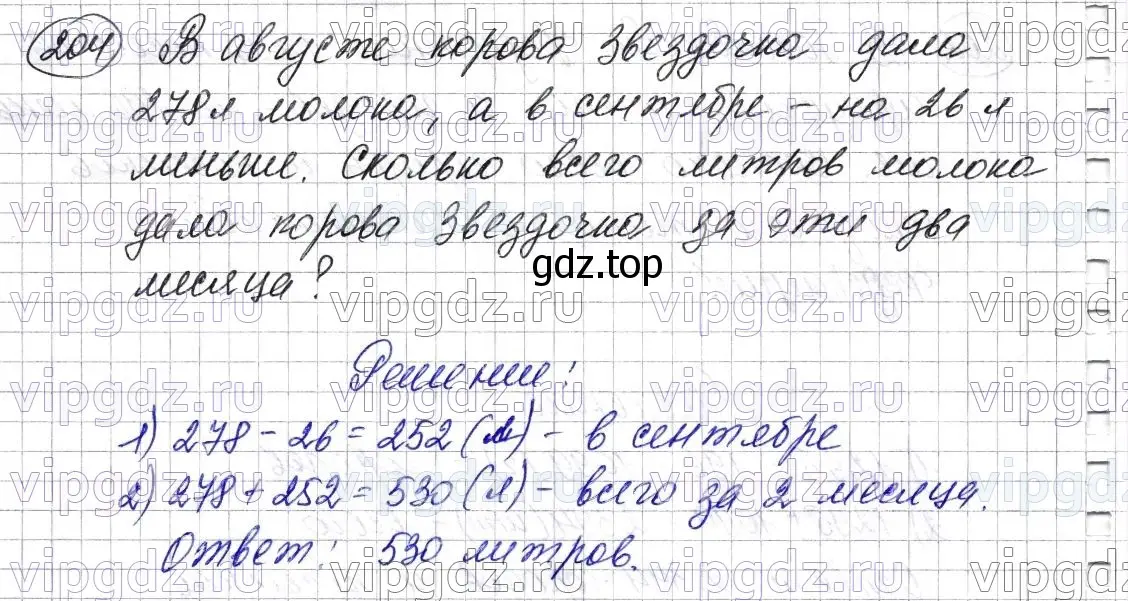 204 В августе корова Звездочка дала
278 л молока, а в сентябре – на 26 л
меньше. Сколько всего литров молока
дала корова Звездочка за эти два
месяца?
gdz.top
Решение:
1) 278 – 26 = 252 (л) – в сентябре
2) 278 + 252 = 530 (л) – всего за 2 месяца.
Ответ: 530 литров.